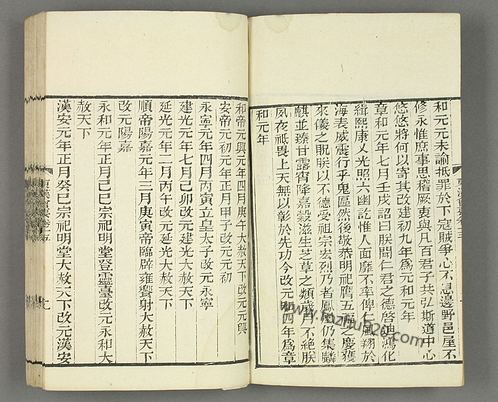 和元元未諭抵罪於下寇賊爭心不息邊野邑屋不
修永惟庶事思稽厥衷與凡百君子共弘斯道中心
悠悠將何以寄其改建初九年爲元和元年
章和元年七月壬戌詔曰朕聞仁君之德啓
緝熙康乂光照六幽訖惟人面靡不率俾仁風翔於
海表威震行乎鬼區然後敬恭明祀膺五福之慶獲
來儀之貺朕以不德受祖宗弘烈乃者鳳凰仍集麒
麟並臻甘露宵降嘉穀滋生芝草之類歲月不絕朕
夙夜祗畏上天無以彰于先功今改元和四年爲章
和元年
和帝元興元年四月庚午大赦天下改元元興
安帝永初元年正月甲子改元元初
永寧元年四月丙寅立皇太子改元永寧
建光元年七月己卯改元建光大赦天下
延光元年三月丙午改元延光大赦天下
順帝陽嘉元年三月庚寅帝臨辟雍饗射大赦天下
改元陽嘉
永和元年正月己巳宗祀明堂登靈臺改元永和大
赦天下
漢安元年正月癸巳宗祀明堂大赦天下改元漢安